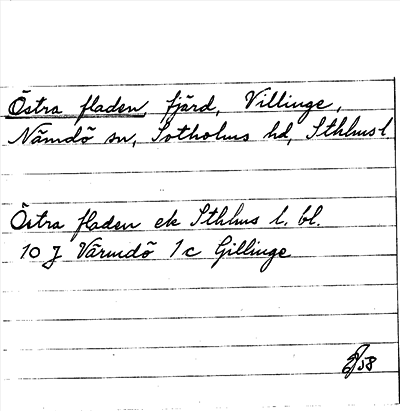 Östra fladen, fjärd, Villinge,
Nämdö sn, Sotholms hd, Sthlms l
Östra fladen ek Sthlms l. bl.
10 J Värmdö 1 c Gillinge
58